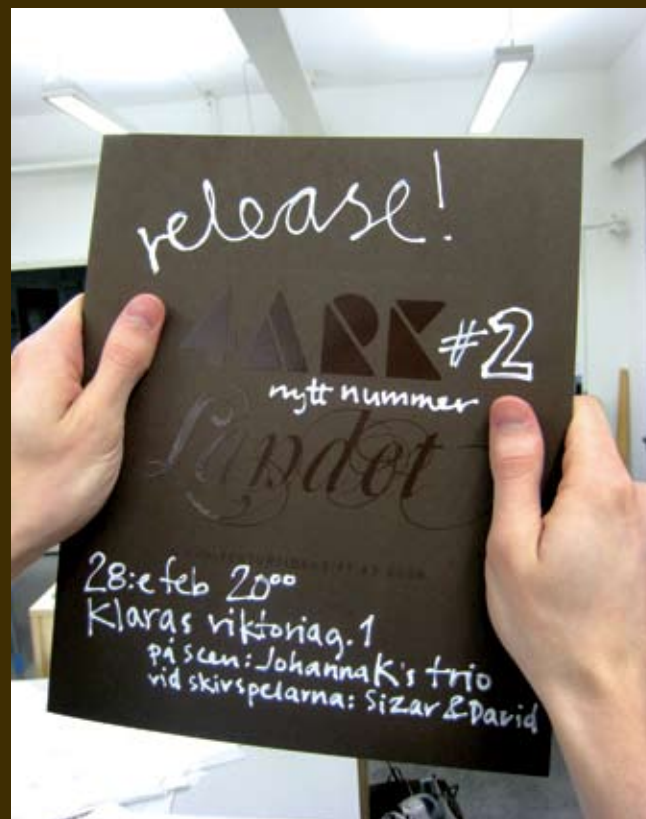 release!
MARK #2
nytt nummer
Landet
28:e feb 20⁰⁰
Klaras viktoriag. 1
på scen: Johanna K's trio
vid skivspelarna: Sizar & David